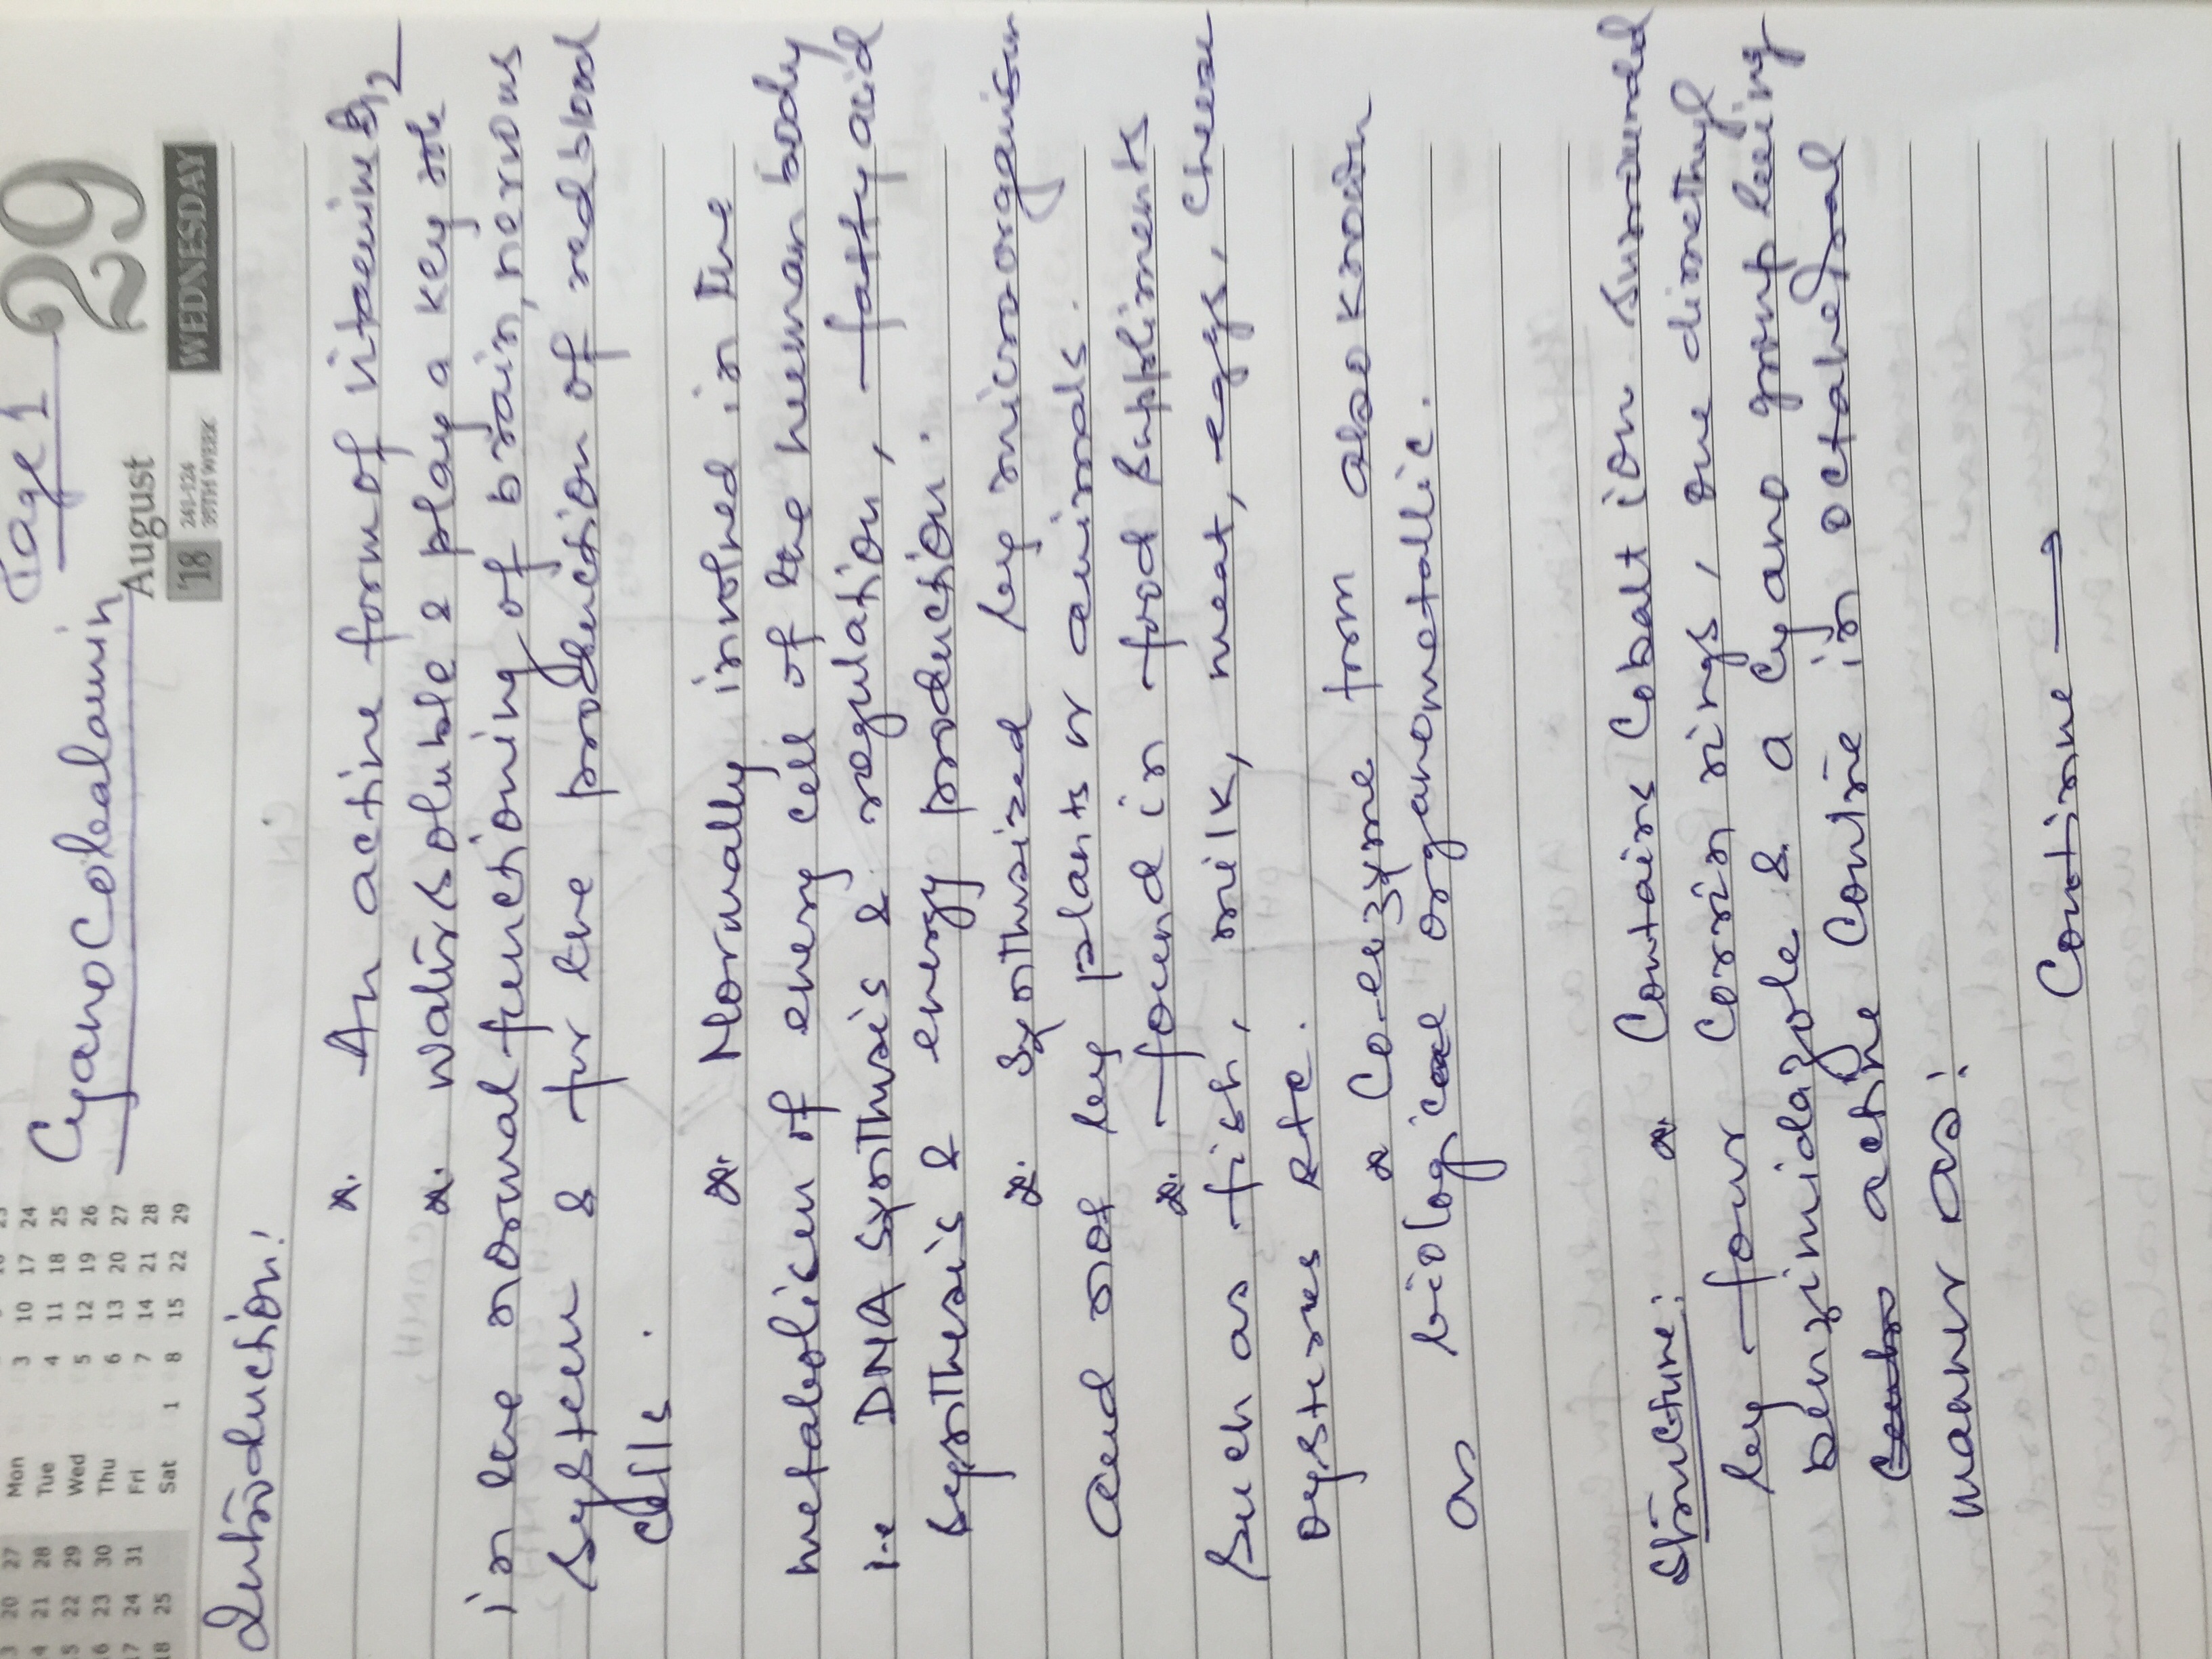 Page 1
Cyanocobalamin
29
August
'18
241-124
35TH WEEK
WEDNESDAY
Mon 3 10 17 24
Tue 4 11 18 25
Wed 5 12 19 26
Thu 6 13 20 27
Fri 7 14 21 28
Sat 1 8 15 22 29
20 27
21 28
22 29
23 30
24 31
18 25
Introduction:
*. An active form of vitamin B12
*. water soluble & play a key role
in the normal functioning of brain, nervous
system & for the production of red blood
cells.
*. Normally involved in the
metabolism of every cell of the human body
i.e DNA synthesis & regulation, fatty acid
synthesis & energy production.
*. Synthesized by microorganism
and not by plants or animals.
*. found in food suppliments
such as fish, milk, meat, eggs, cheese
oysteres etc.
* Co-enzyme from also known
as biological organometallic.
Structure: *. Contains Cobalt ion surrounded
by four Corrin rings, one dimethyl
benzimidazole & a Cyano group being
active Contre in octahedral
manner as:
Continue →